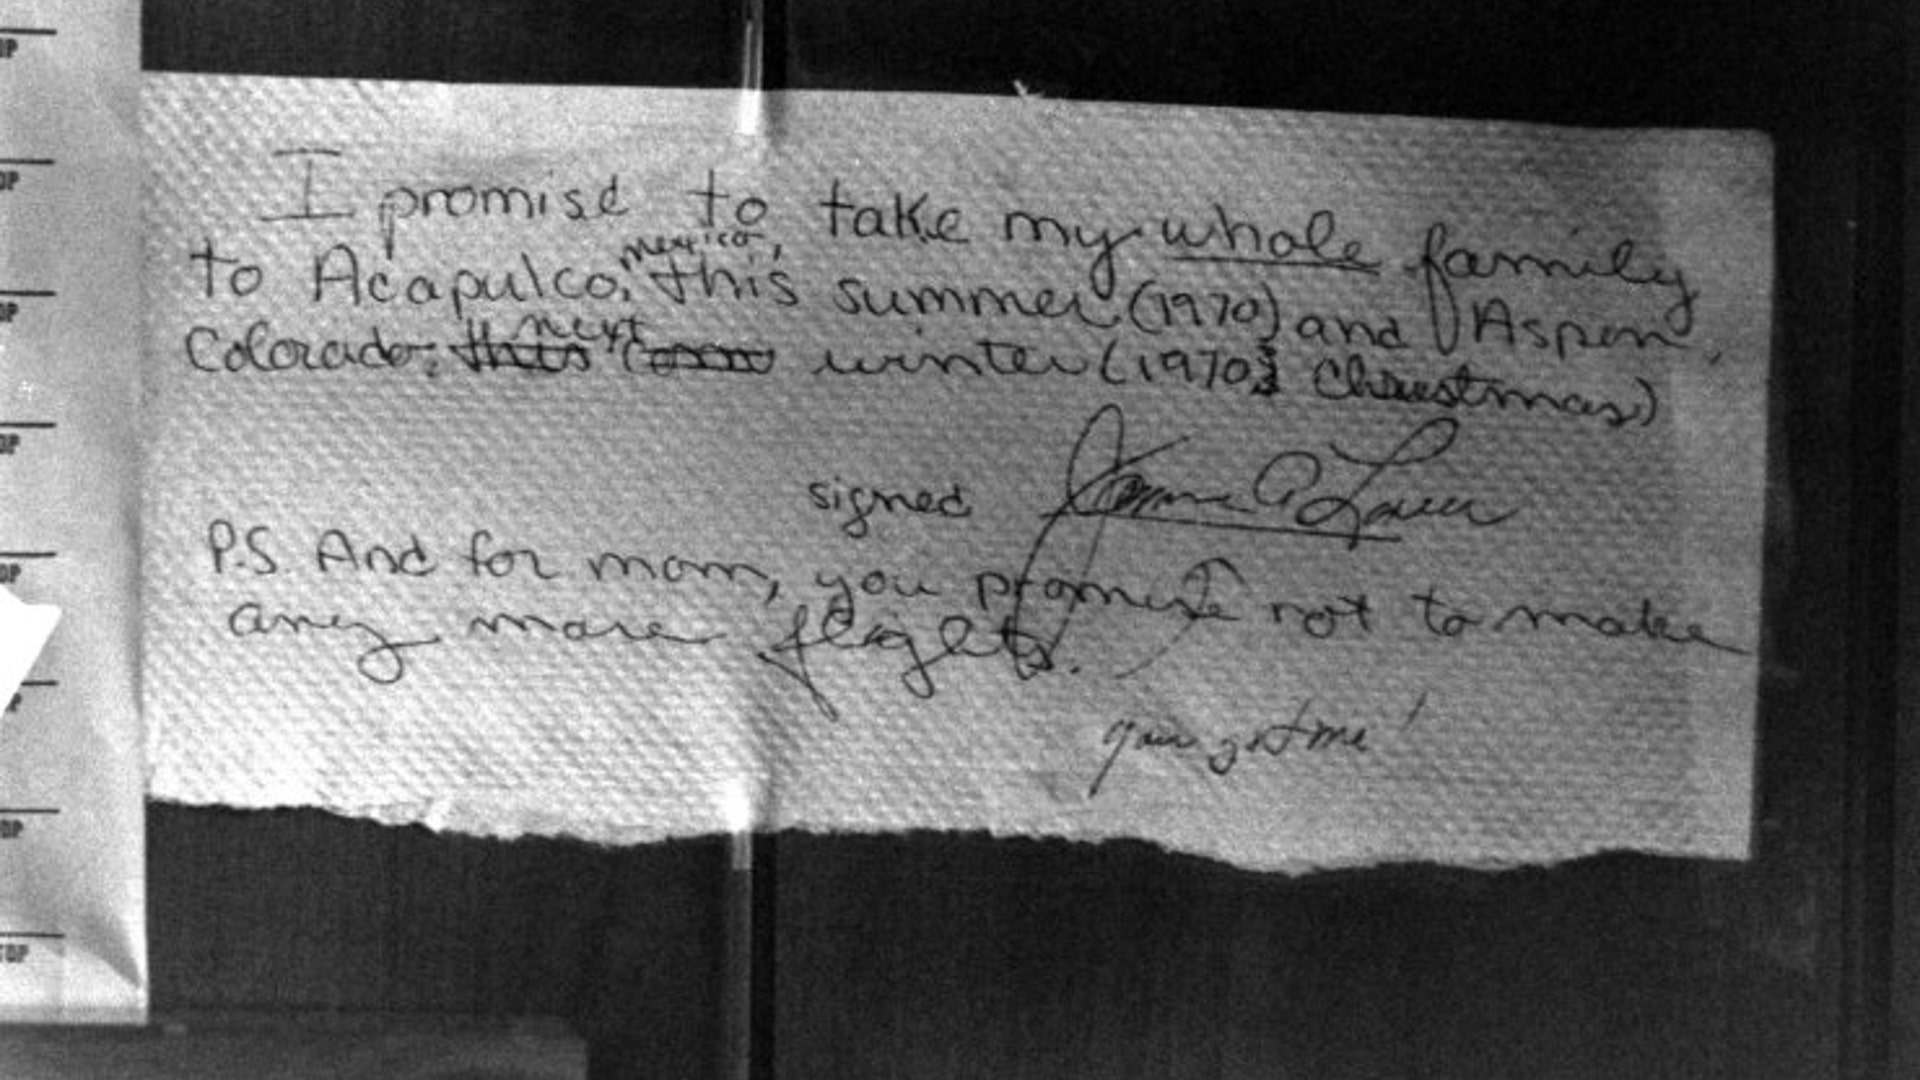 I promise to take my whole family
to Acapulco, Mexico, this summer (1970) and Aspen,
Colorado, next winter (1970, Christmas)
signed James A Lovell
P.S. And for mom, you promise not to make
any more flights.
you got me!
OP
OP
OP
OP
OP
OP
TOP